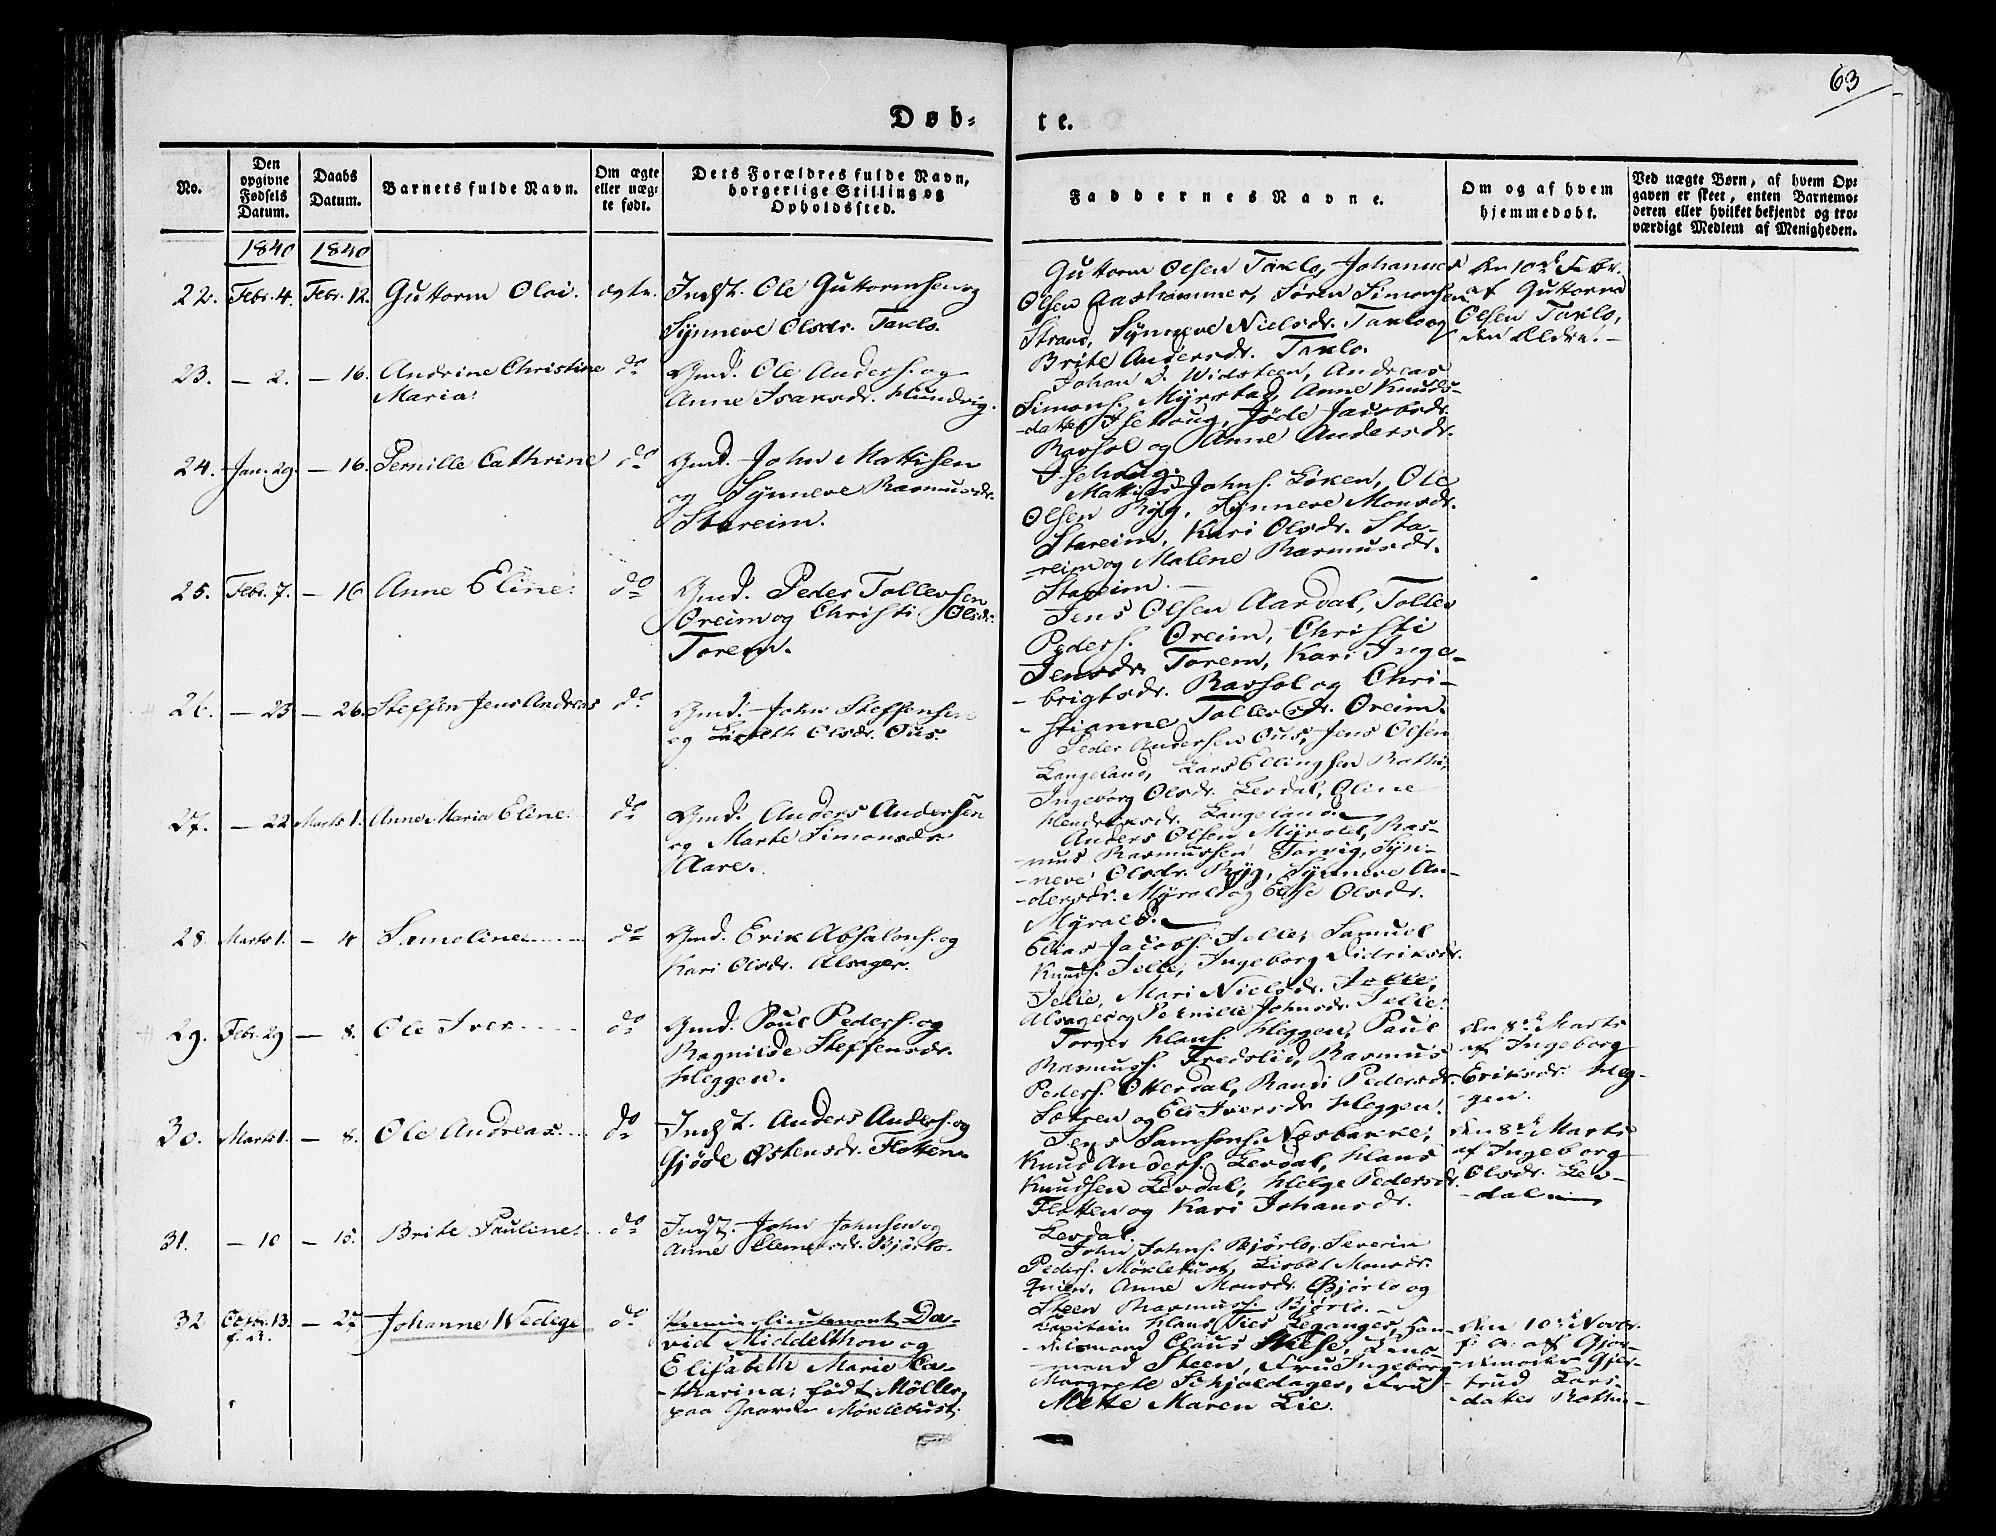 63
Døb-
te.
No.
Den opgivne Fødsels Datum.
Daabs Datum.
Barnets fulde Navn.
Om ægte eller uægte født.
Dets Forældres fulde Navn, borgerlige Stilling og Opholdssted.
Faddernes Navne.
Om og af hvem hjemmedøbt.
Ved uægte Børn, af hvem Opgaven er skeet, enten Barnemoderen eller hvilket bekjendt og troværdigt Medlem af Menigheden.
1840 1840
22. Febr. 4. Febr. 12. Guttorm Oloi. ægte. Indst. Ole Guttormsen og
Synneve Olsdr. Taklo.
Guttorm Olsen Taklo, Johannes
Olsen Aashammer, Søren Simonsen
Strand, Synneve Nielsdr. Taklo og
Brite Andersdr. Taklo.
den 10de Febr.
af Guttorm
Olsen Taklo,
den Ældre. —
23. — 2. — 16. Andrine Christine do Gmd. Ole Anders. og
Maria. Anne Isaksdr. Hundvig.
Johan D. Widsteen, Andreas
Simons. Myrstad, Anne Knuds-
-datter Isehoug, Jøde Jacobsdr.
Ravsol og Anne Andersdr.
Isehoug.
24. Jan. 29. — 16. Pernille Cathrine do Gmd. John Mattisen
og Synneve Rasmusdr.
Stareim.
Mattias Johns. Løken, Ole
Olsen Ryg, Synneve Monsdr.
Stareim, Kari Olsdr. Sta-
-reim og Malene Rasmusdr.
Stareim. —
25. Febr. 7. — 16 Anne Eline. do Gmd. Peder Tollevsen
Oreim og Christi Olsdr.
Torem.
Jens Olsen Aardal, Tollev
Peders. Oreim, Christi
Jensdr. Torem, Kari Inge-
-brigtsdr. Ravsol og Chri-
-stianne Tollevsdr. Oreim.
26. — 23 — 26. Steffen Jens Andreas do Gmd. John Steffensen
og Lisbeth Olsdr. Ous.
Peder Andersen Ous, Jens Olsen
Langeland, Lars Ellingsen Rothi,
Ingeborg Olsdr. Levdal, Oline
Hendriksdr. Langeland.
27. — 22 Marts 1. Anne Maria Eline. do Gmd. Anders Andersen
og Marte Simonsdr.
Aare.
Anders Olsen Myrold, Ras-
-mus Rasmussen Torvig, Syn-
-neve Olsdr. Ryg, Synneve An-
-dersdr. Myrold og Else Olsdr.
Myrold.
28 Marts 1. — 4 Semeline do Gmd. Erik Absalons. og
Kari Olsdr. Alsager.
Elias Jacobs. Jelle, Samuel
Knuds. Jelle, Ingeborg Didriksdr.
Jelle, Mari Nielsdr. Jelle,
Alsager og Pernille Johnsdr. Jelle.
29. Febr. 29 — 8. Ole Iver do Gmd. Poul Peders. og
Ragnilde Steffensdr.
Heggen.
Torger Hans. Heggen, Paul
Rasmuss. Fredslid, Rasmus
Peders. Otterdal, Randi Pedersdr.
Sætren og Eli Iversdr. Heggen.
den 8de Marts
af Ingeborg
Eriksdr. Heg-
-gen.
30. Marts 1. — 8. Ole Andreas do Indst. Anders Anders. og
Gjøde Østensdr. Flotten.
Jens Samsons. Næsbakke,
Knud Anders. Levdal, Hans
Knudsen Levdal, Helge Pedersdr.
Flotten og Kari Johansdr.
Levdal.
den 8de Marts
af Ingeborg
Olsdr. Lev-
-dal.
31. — 10 — 15. Brite Pauline. do Indst. John Johnsen og
Anne Clemetsdr. Bjørlo.
John Johns. Bjørlo, Severin
Peders. Møklebust, Lisbet Monsdr.
Anne Monsdr. Bjørlo og
Steen Rasmus. Bjørlo. —
32 Octbr. 13. — 27 Johanne Wedege do Premierlieutenant Da-
vid Middelthon og
Elisabeth Marie Ca-
-tharina, født Møller,
paa Gaarden Møklebust.
Capitain Hans Ties Leganger, Han-
-delsmand Claus Wiese, Lens-
-mand Steen, Fru Ingeborg
Margrete Schjoldager, Fru
Mette Maren Lie.
den 10de Novbr.
f. A. af Gjor-
-demoder Gjer-
-trud Lars-
-datter Rothi